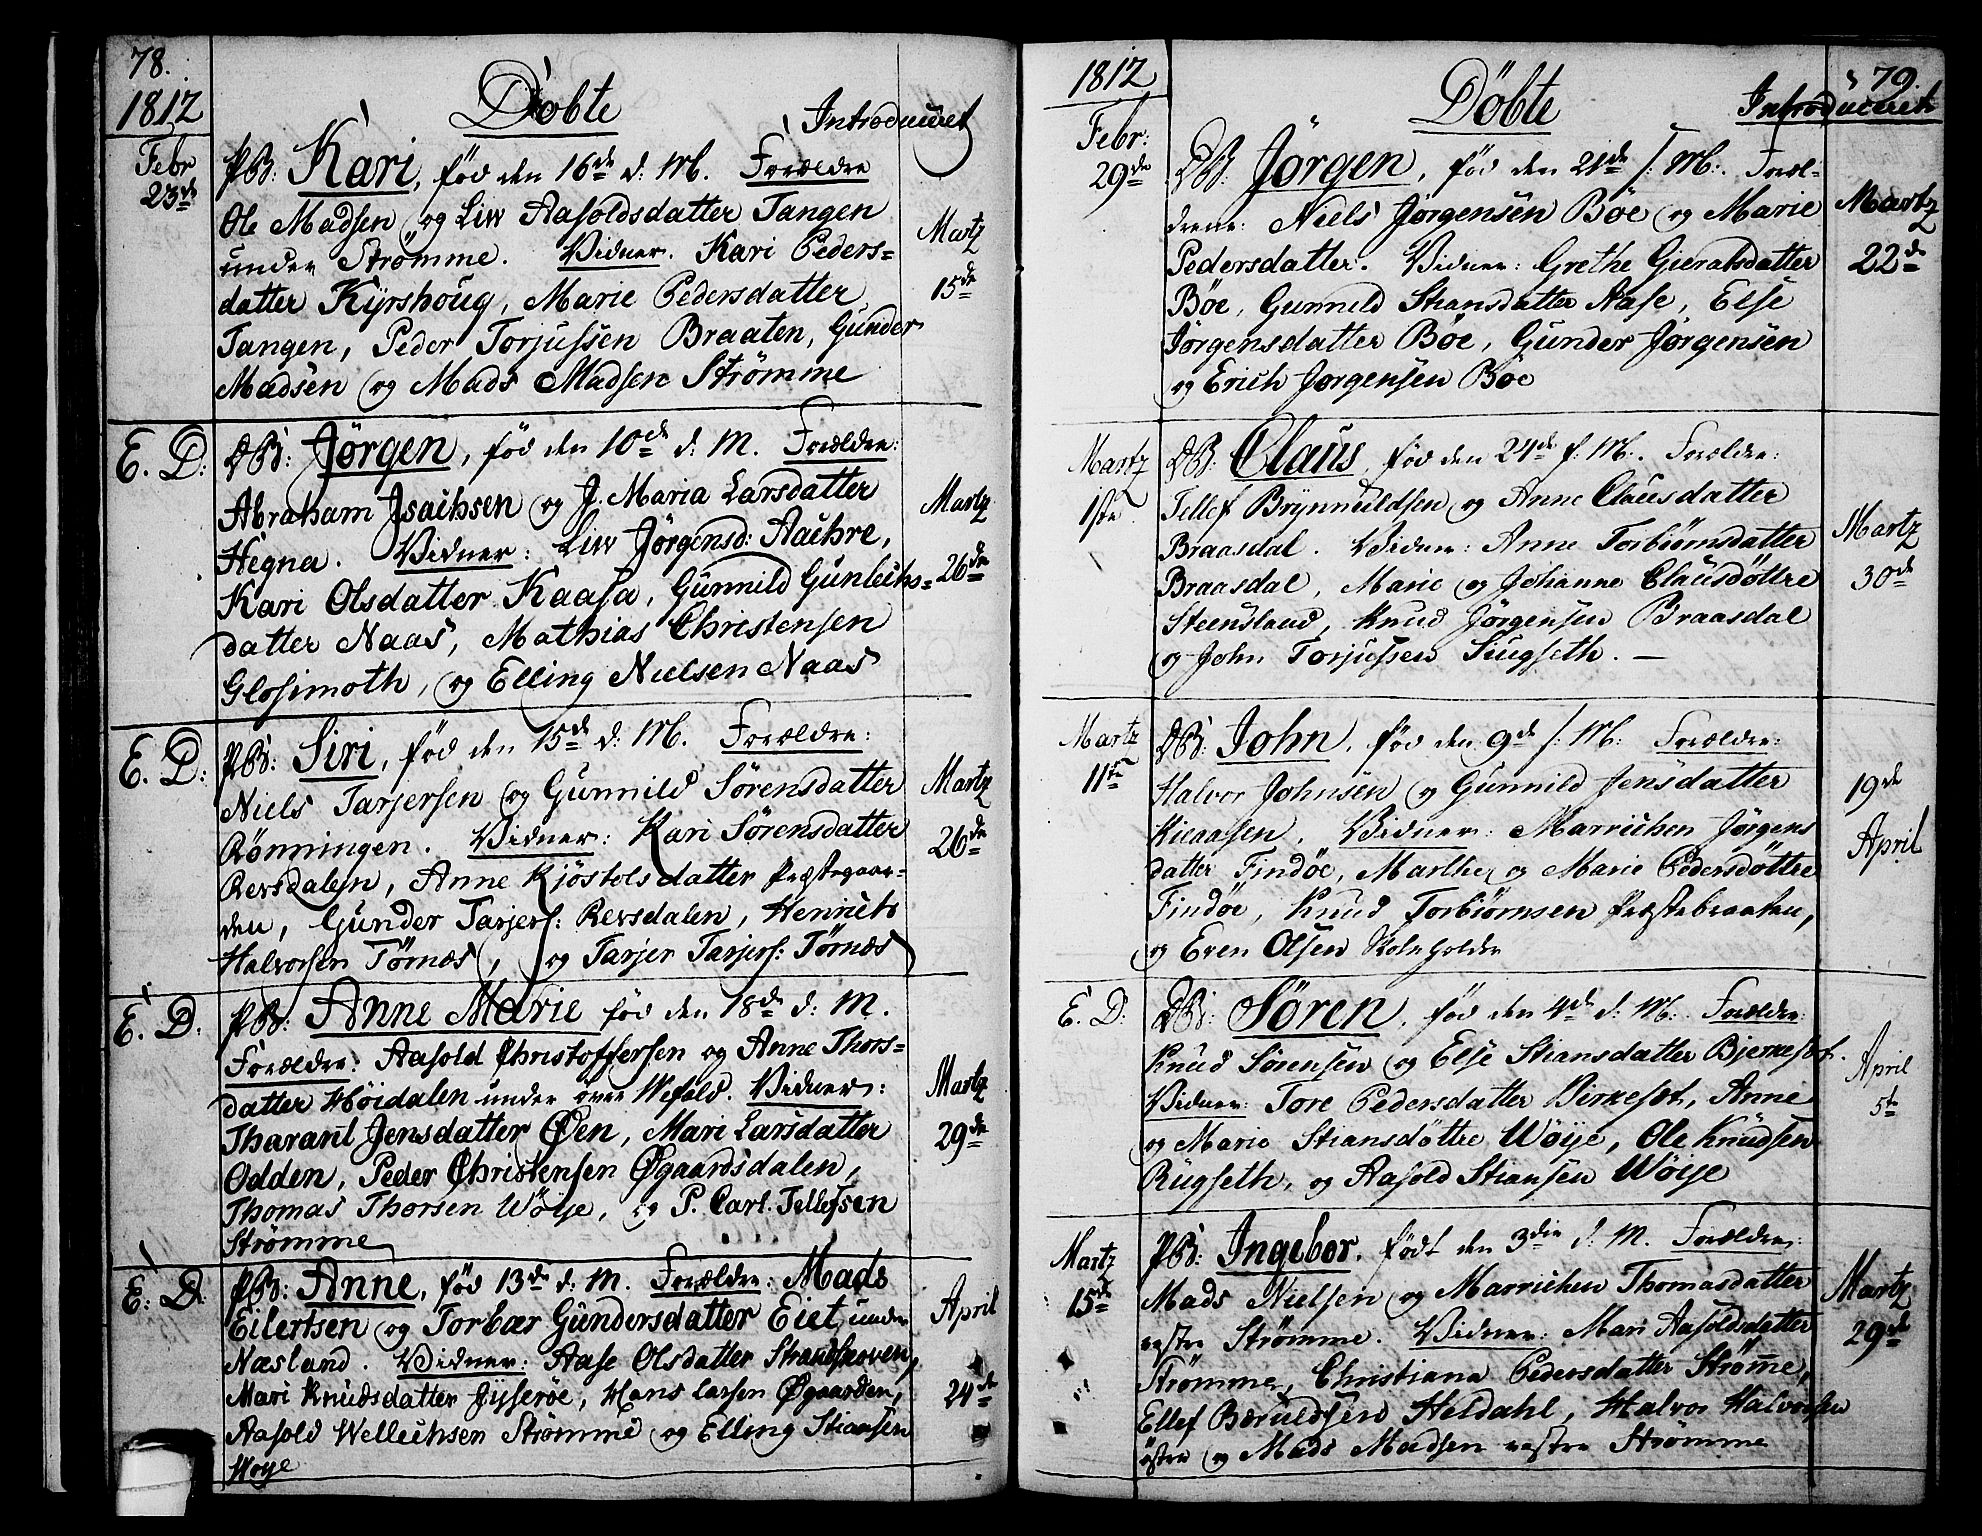 78.
1812
Døbte
Introduceret
Febr
23de
PB: Kari, fød den 16de d: M. Forældre
Ole Madsen og Liw Aasoldsdatter Tangen
under Strömme. Vidner. Kari Peders-
datter Kyrshoug, Marie Pedersdatter
Tangen, Peder Torjussen Braaten, Gunder
Madsen og Mads Madsen Strömme
Martz
15de
E. D:
DB: Jørgen, fød den 10de d: M. Forældre:
Abraham Isachsen og J. Maria Larsdatter
Hegna. Vidner: Liw Jørgensd: Aachre,
Kari Olsdatter Kaasa, Gunnild Gunleichs=
datter Naas, Mathias Christensen
Glosimoth, og Elling Nielsen Naas
Martz
26de
E. D:
PB: Siri, fød den 15de d: M. Forældre:
Niels Tarjersen og Gunnild Sørensdatter
Rønningen. Vidner: Kari Sørensdatter
Revsdalen, Anne Kjöstolsdatter Præstegaar-
den, Gunder Tarjers: Revsdalen, Henrich
Halvorsen Törnæs, og Tarjer Tarjers: Törnæs
Martz
26de
E. D.
PB: Anne Marie fød den 18de d: M.
Forældre: Aasold Christoffersen og Anne Thors-
datter Höidalen under övre Wefald. Vidner:
Tharant Jensdatter Øen, Mari Larsdatter
Odden, Peder Christensen Øgaardsdalen,
Thomas Thorsen Wöije, og P. Carl. Tellefsen
Strömme
Martz
29de
E. D.
PB: Anne, fød 13de d: M. Forældre: Mads
Eilertsen og Torbær Gundersdatter Eiet under
Næsland. Vidner: Aase Olsdatter Strandskoven,
Mari Knudsdatter Jysseröe, Hans Larsen Øgaarden,
Aasold Wellechsen Strömme og Elling Stiansen
Woye
April
24de
1812
Döbte
79
Introduceret
Febr:
29de
DB: Jørgen, fød den 21de f: M: Foræl-
drene: Niels Jørgensen Böe og Marie
Pedersdatter. Vidner: Grethe Guralsdatter
Böe, Gunnild Stiansdatter Aase, Else
Jörgensdatter Böe, Gunder Jørgensen
og Erich Jørgensen Böe
Martz
22de
Martz
1ste
DB: Claus, fød den 24de f: M. Forældre:
Tellef Brynnuldsen og Anne Clausdatter
Braasdal. Vidner: Anne Torbiørnsdatter
Braasdal, Marie og Johanne Clausdöttre
Steensland, Knud Jørgensen Braasdal
og John Torjussen Sugseth. —
Martz
30de
Martz
11te
DB: John, fød den 9de f: M: Forældre:
Halvor Johnsen og Gunnild Jensdatter
Kieaasen. Vidner: Marrichen Jørgens
datter Findöe, Marthe og Marie Pedersdöttre
Findöe, Knud Torbiörnsen Præstebraaten,
og Even Olsen
19de
April
E. D:
DB: Sören, fød den 4de d: M: Forældre:
Knud Sörensen og Else Stiansdatter Bjerkesæt.
Vidner: Tore Pedersdatter Birkesæt, Anne
og Marie Stiansdöttre Wöije, Ole Knudsen
Rugseth, og Aasold Stiansen Wöije
April
5te
Martz
15de
PB: Ingebor, født den 3die d: M. Forældre:
Mads Nielsen og Marrichen Thomasdatter
vestre Strömme. Vidner: Mari Aasoldsdatter
Strömme, Christiana Pedersdatter Strömme,
Ellef Bæruldsen Heldahl, Halvor Halvorsen
östre og Mads Madsen vestre Strömme
Martz
29de